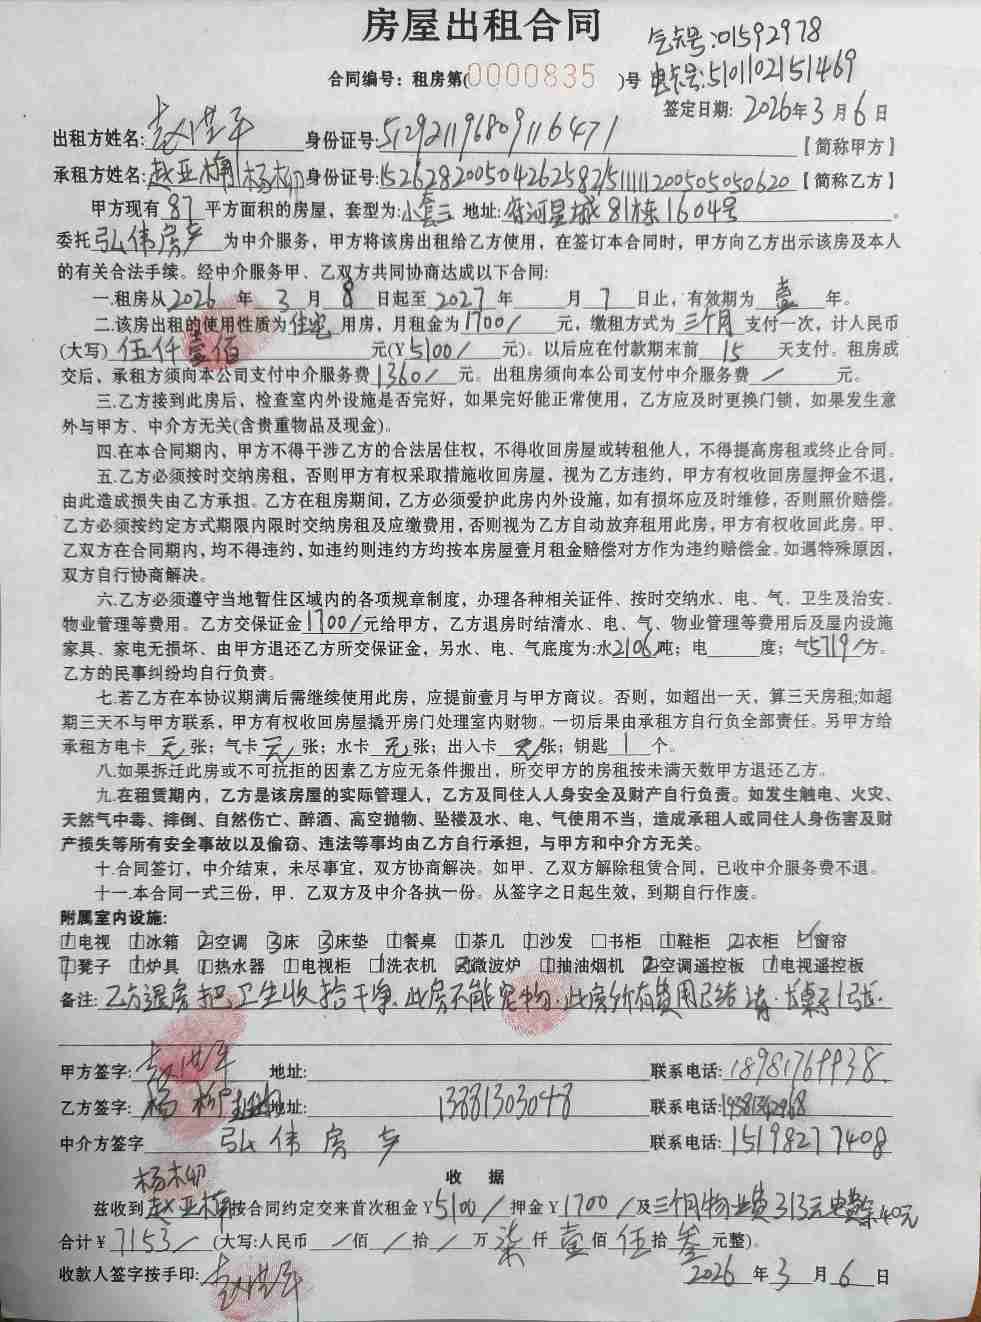 房屋出租合同
气卡号:01592978
合同编号：租房第(0000835)号 电卡号:5101102151469
签定日期: 2026年3月6日
出租方姓名: 赵洪平 身份证号:512921196809116471【简称甲方】
承租方姓名: 赵亚楠 杨柳 身份证号:152628200504262582/511111200505050620【简称乙方】
甲方现有 87 平方面积的房屋，套型为:小套三 地址:府河星城81栋1604号。
委托 弘伟房产 为中介服务，甲方将该房出租给乙方使用，在签订本合同时，甲方向乙方出示该房及本人
的有关合法手续。经中介服务甲、乙双方共同协商达成以下合同:
一.租房从 2026 年 3 月 8 日起至 2027 年 月 7 日止，有效期为 壹 年。
二.该房出租的使用性质为 住宅 用房，月租金为 1700/ 元，缴租方式为 三个月 支付一次，计人民币
(大写) 伍仟壹佰 元(Y 5100/ 元)。以后应在付款期末前 15 天支付。租房成
交后，承租方须向本公司支付中介服务费 1360/ 元。出租房须向本公司支付中介服务费 / 元。
三.乙方接到此房后，检查室内外设施是否完好，如果完好能正常使用，乙方应及时更换门锁，如果发生意
外与甲方、中介方无关(含贵重物品及现金)。
四.在本合同期内，甲方不得干涉乙方的合法居住权，不得收回房屋或转租他人，不得提高房租或终止合同。
五.乙方必须按时交纳房租，否则甲方有权采取措施收回房屋，视为乙方违约，甲方有权收回房屋押金不退，
由此造成损失由乙方承担。乙方在租房期间，乙方必须爱护此房内外设施，如有损坏应及时维修，否则照价赔偿。
乙方必须按约定方式期限内限时交纳房租及应缴费用，否则视为乙方自动放弃租用此房，甲方有权收回此房。甲、
乙双方在合同期内，均不得违约，如违约则违约方均按本房屋壹月租金赔偿对方作为违约赔偿金。如遇特殊原因，
双方自行协商解决。
六.乙方必须遵守当地暂住区域内的各项规章制度，办理各种相关证件、按时交纳水、电、气、卫生及治安、
物业管理等费用。乙方交保证金 1700/ 元给甲方，乙方退房时结清水、电、气、物业管理等费用后及屋内设施
家具、家电无损坏、由甲方退还乙方所交保证金，另水、电、气底度为:水 2106 吨；电 度；气 5719/ 方。
乙方的民事纠纷均自行负责。
七.若乙方在本协议期满后需继续使用此房，应提前壹月与甲方商议。否则，如超出一天，算三天房租;如超
期三天不与甲方联系，甲方有权收回房屋撬开房门处理室内财物。一切后果由承租方自行负全部责任。另甲方给
承租方电卡 无 张；气卡 无 张；水卡 无 张；出入卡 无 张；钥匙 1 个。
八.如果拆迁此房或不可抗拒的因素乙方应无条件搬出，所交甲方的房租按未满天数甲方退还乙方。
九.在租赁期内，乙方是该房屋的实际管理人，乙方及同住人人身安全及财产自行负责。如发生触电、火灾、
天然气中毒、摔倒、自然伤亡、醉酒、高空抛物、坠楼及水、电、气使用不当，造成承租人或同住人身伤害及财
产损失等所有安全事故以及偷窃、违法等事均由乙方自行承担，与甲方和中介方无关。
十.合同签订，中介结束，未尽事宜，双方协商解决。如甲、乙双方解除租赁合同，已收中介服务费不退。
十一.本合同一式三份，甲、乙双方及中介各执一份。从签字之日起生效，到期自行作废。
附属室内设施:
1电视 1冰箱 2空调 3床 3床垫 1餐桌 1茶几 1沙发 □书柜 1鞋柜 2衣柜 窗帘
7凳子 1炉具 1热水器 1电视柜 1洗衣机 微波炉 1抽油烟机 2空调遥控板 1电视遥控板
备注: 乙方退房把卫生收拾干净.此房不能宠物.此房所有费用已结清.桌子1张.
甲方签字: 赵洪平 地址: 联系电话: 18981769938
乙方签字: 杨柳 赵亚楠 地址: 13881303048 联系电话:
中介方签字 弘伟房产 联系电话: 15198277408
收 据
杨柳
兹收到 赵亚楠 按合同约定交来首次租金Y 5100/ 押金Y 1700/ 及三个月物业费313元电费余40元
合计¥ 7153/ (大写:人民币 / 佰 / 拾 / 万 柒 仟 壹 佰 伍 拾 叁 元整)。
收款人签字按手印: 赵洪平 2026 年 3 月 6 日